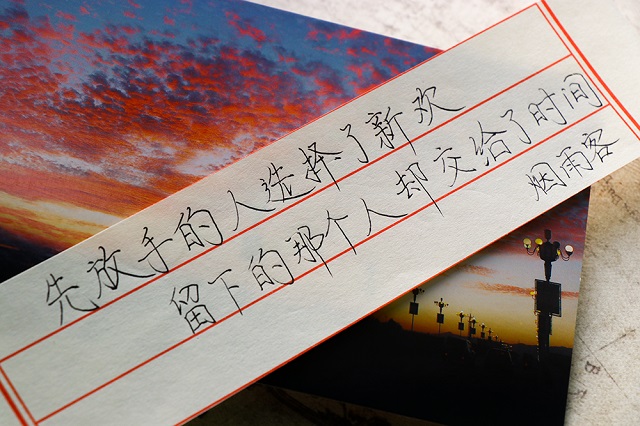 先放手的人选择了新欢
留下的那个人却交给了时间
烟雨客